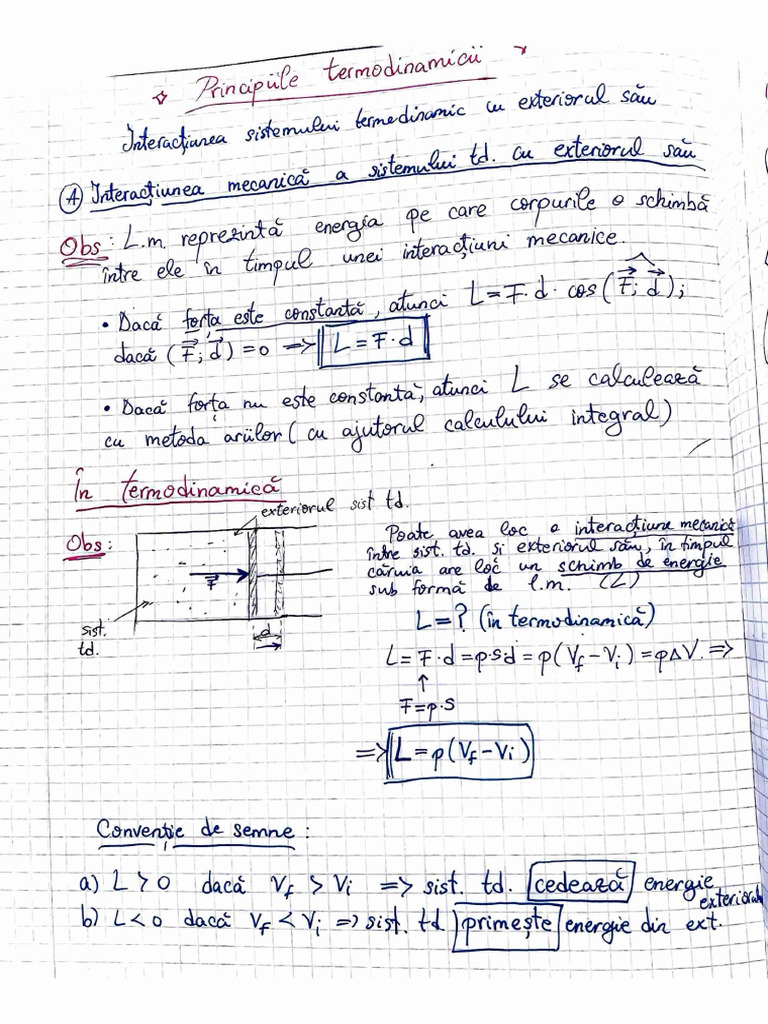 Principiile termodinamicii
Interacțiunea sistemului termodinamic cu exteriorul său
Ⓐ Interacțiunea mecanică a sistemului td. cu exteriorul său
Obs: L.m. reprezintă energia pe care corpurile o schimbă
între ele în timpul unei interacțiuni mecanice.
• Dacă forța este constantă, atunci L = F·d·cos(F⃗; d⃗);
dacă (F⃗; d⃗) = 0 => L = F·d
• Dacă forța nu este constantă, atunci L se calculează
cu metoda ariilor (cu ajutorul calculului integral)
În termodinamică
exteriorul sist td.
Obs:
F⃗
sist.
td.
d
Poate avea loc o interacțiune mecanică
între sist. td. și exteriorul său, în timpul
căruia are loc un schimb de energie
sub formă de l.m. (L)
L = ? (în termodinamică)
L = F·d = p·s·d = p(Vf - Vi) = pΔV. =>
↑
F = p·S
=> L = p(Vf - Vi)
Convenție de semne:
a) L > 0 dacă Vf > Vi => sist. td. cedează energie exteriorului
b) L < 0 dacă Vf < Vi => sist. td primește energie din ext.